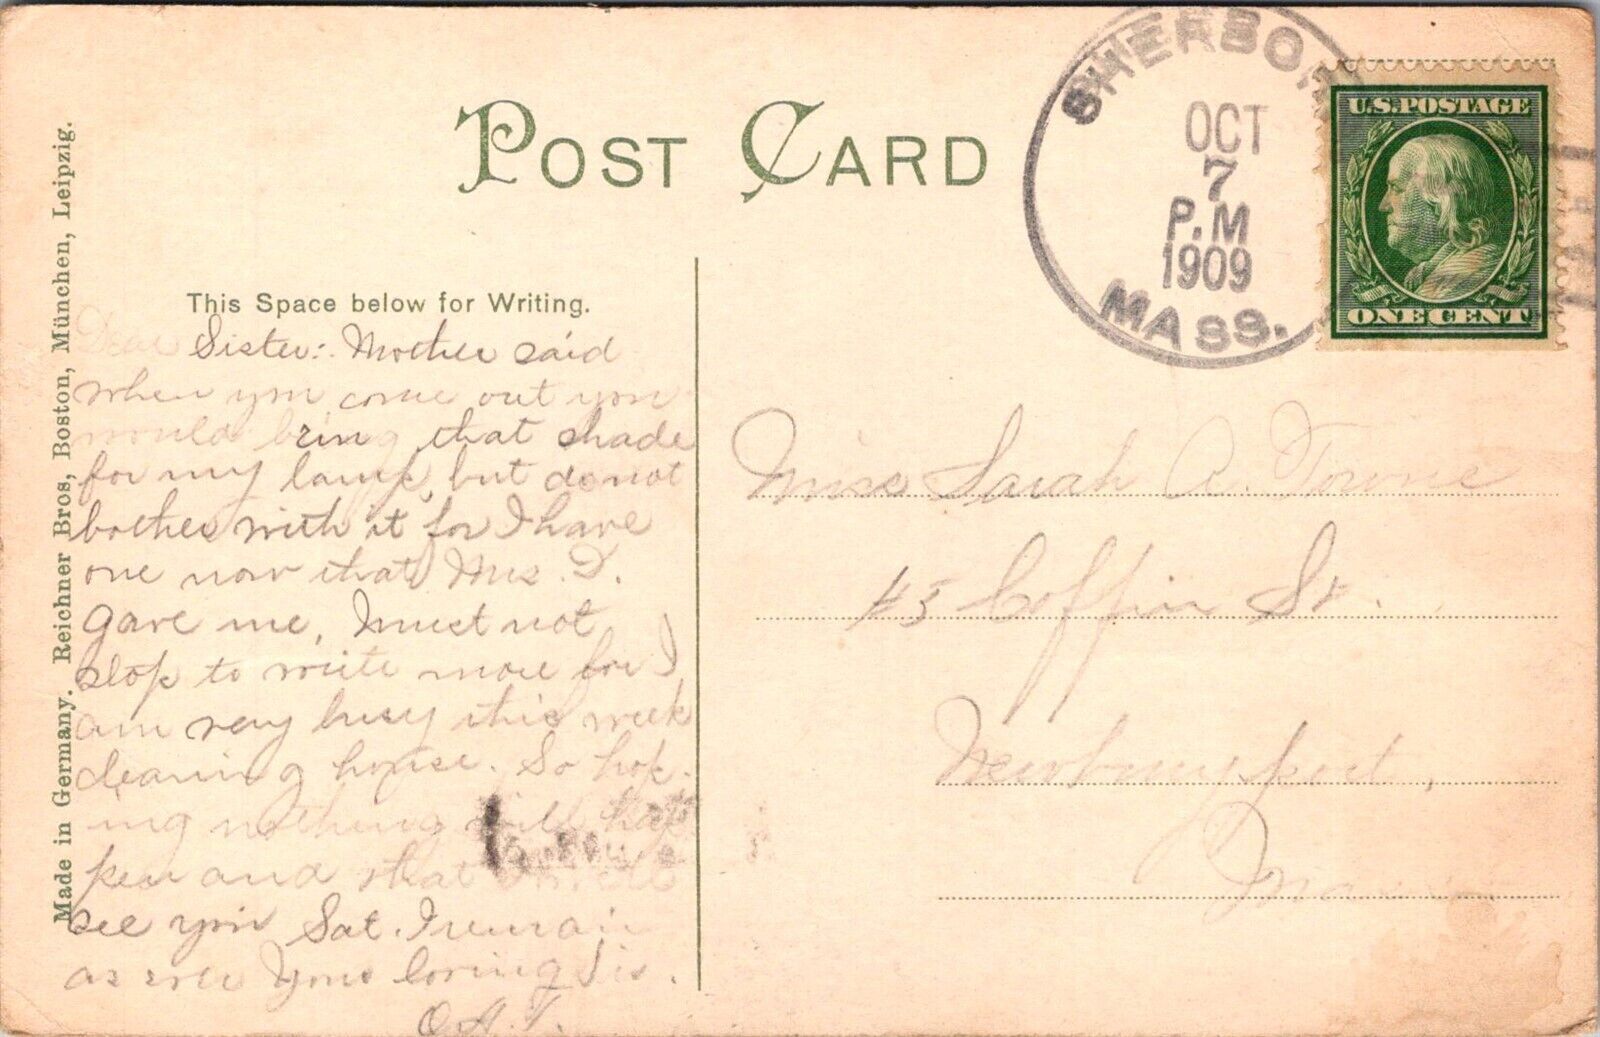 POST CARD
SHERBOR
OCT
7
P.M
1909
MASS.
U.S.POSTAGE
ONE CENT
Made in Germany. Reichner Bros, Boston, München, Leipzig.
This Space below for Writing.
Dear Sister: Mother said
when you come out you
would bring that shade
for my lamp, but do not
bother with it for I have
one now that Mrs. D.
gave me, I must not
stop to write more for I
am very busy this week
cleaning house. So hop-
ing nothing will hap
pen and that
see you Sat. I remain
as ever Your loving Sis.
O.A.T.
Miss Sarah A. Towne
45 Coffin St.
Newburyport,
Mass